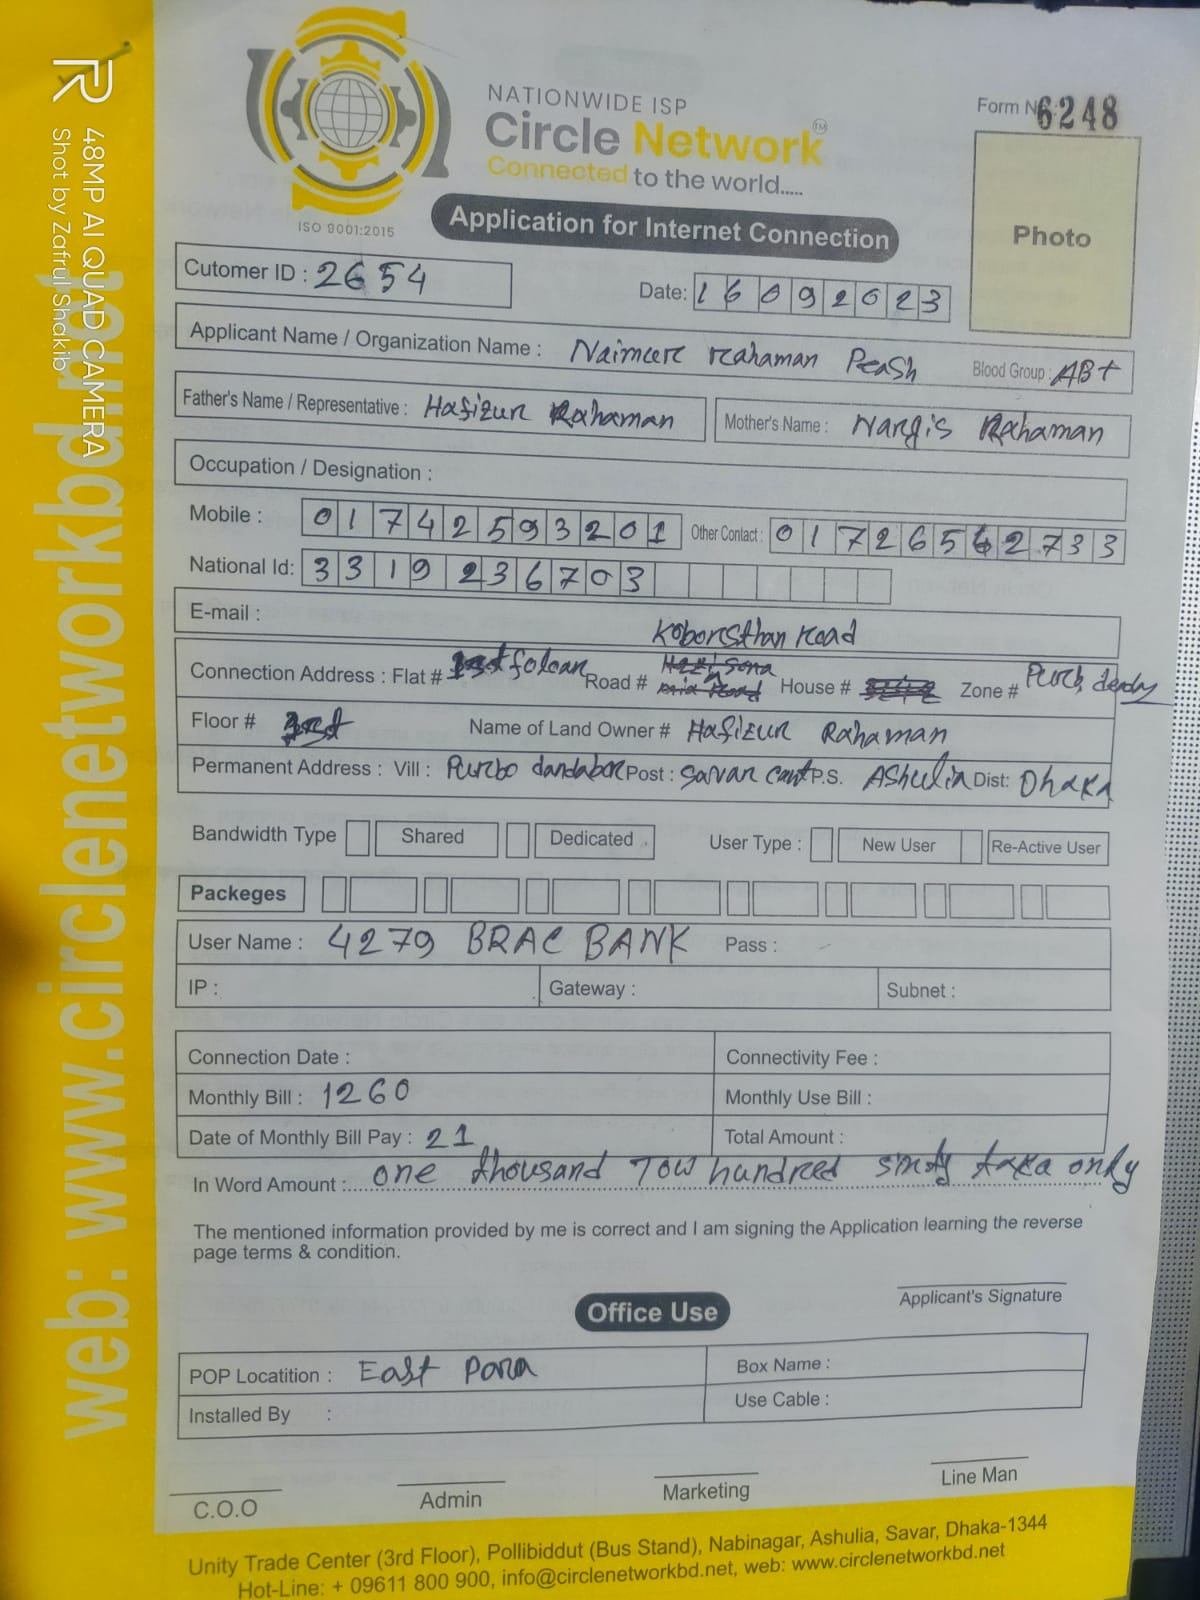 NATIONWIDE ISP
Circle Network™
Connected to the world.....
ISO 9001:2015
Form No 6248
Photo
Application for Internet Connection
Cutomer ID : 2654
Date: 16092023
Applicant Name / Organization Name : Naimur rahaman Peash Blood Group : AB+
Father's Name / Representative : Hafizur Rahaman Mother's Name : Nargis Rahaman
Occupation / Designation :
Mobile : 01742593201 Other Contact : 01726562733
National Id: 3319236703
E-mail :
Koborsthan road
Connection Address : Flat # Road # House # Zone #
Floor # 3rd Name of Land Owner # Hafizur Rahaman
Permanent Address : Vill : Purbo dandabor Post : Savar cant P.S. Ashulia Dist: Dhaka
Bandwidth Type Shared Dedicated User Type : New User Re-Active User
Packeges
User Name : 4279 BRAC BANK Pass :
IP : Gateway : Subnet :
Connection Date : Connectivity Fee :
Monthly Bill : 1260 Monthly Use Bill :
Date of Monthly Bill Pay : 21 Total Amount :
In Word Amount : one thousand Tow hundred sixty taka only
The mentioned information provided by me is correct and I am signing the Application learning the reverse
page terms & condition.
Applicant's Signature
Office Use
POP Locatition : East Para Box Name :
Installed By : Use Cable :
C.O.O Admin Marketing Line Man
Unity Trade Center (3rd Floor), Pollibiddut (Bus Stand), Nabinagar, Ashulia, Savar, Dhaka-1344
Hot-Line: + 09611 800 900, info@circlenetworkbd.net, web: www.circlenetworkbd.net
web: www.circlenetworkbd.net
48MP AI QUAD CAMERA
Shot by Zafrul Shakib